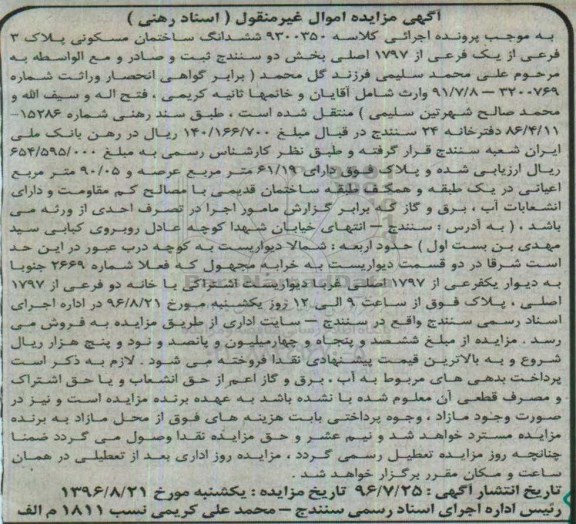 آگهی مزایده اموال غیرمنقول ( اسناد رهنی )
به موجب پرونده اجرائی کلاسه ۹۳۰۰۳۵۰ ششدانگ ساختمان مسکونی پلاک ۳
فرعی از یک فرعی از ۱۷۹۷ اصلی بخش دو سنندج ثبت و صادر و مع الواسطه به
مرحوم علی محمد سلیمی فرزند گل محمد ( برابر گواهی انحصار وراثت شماره
۳۲۰۰۷۶۹ – ۹۱/۷/۸ وارث شامل آقایان و خانمها ثانیه کریمی ، فتح اله و سیف الله و
محمد صالح شهرتین سلیمی ) منتقل شده است ، طبق سند رهنی شماره ۱۵۲۸۶-
۸۶/۴/۱۱ دفترخانه ۲۴ سنندج در قبال مبلغ ۱۴۰/۱۶۶/۷۰۰ ریال در رهن بانک ملی
ایران شعبه سنندج قرار گرفته و طبق نظر کارشناس رسمی به مبلغ ۶۵۴/۵۹۵/۰۰۰
ریال ارزیابی شده و پلاک فوق دارای ۶۱/۱۹ متر مربع عرصه و ۹۰/۰۵ متر مربع
اعیانی در یک طبقه و همکف طبقه ساختمان قدیمی با مصالح کم مقاومت و دارای
انشعابات آب ، برق و گاز که برابر گزارش مامور اجرا در تصرف احدی از ورثه می
باشد ، ( به آدرس : سنندج – انتهای خیابان شهدا کوچه عادل روبروی کبابی سید
مهدی بن بست اول ) حدود اربعه : شمالا دیواریست به کوچه درب عبور در این حد
است شرقا در دو قسمت دیواریست به خرابه مجهول که فعلا شماره ۲۶۶۹ جنوبا
به دیوار یکفرعی از ۱۷۹۷ اصلی غربا دیواریست اشتراکی با خانه دو فرعی از ۱۷۹۷
اصلی ، پلاک فوق از ساعت ۹ الی ۱۲ روز یکشنبه مورخ ۹۶/۸/۲۱ در اداره اجرای
اسناد رسمی سنندج واقع در سنندج – سایت اداری از طریق مزایده به فروش می
رسد . مزایده از مبلغ ششصد و پنجاه و چهارمیلیون و پانصد و نود و پنج هزار ریال
شروع و به بالاترین قیمت پیشنهادی نقدا فروخته می شود . لازم به ذکر است
پرداخت بدهی های مربوط به آب ، برق و گاز اعم از حق انشعاب و یا حق اشتراک
و مصرف قطعی آن معلوم شده یا نشده باشد به عهده برنده مزایده است و نیز در
صورت وجود مازاد ، وجوه پرداختی بابت هزینه های فوق از محل مازاد به برنده
مزایده مسترد خواهد شد و نیم عشر و حق مزایده نقدا وصول می گردد ضمنا
چنانچه روز مزایده تعطیل رسمی گردد ، مزایده روز اداری بعد از تعطیلی در همان
ساعت و مکان مقرر برگزار خواهد شد .
تاریخ انتشار آگهی : ۹۶/۷/۲۵ تاریخ مزایده : یکشنبه مورخ ۱۳۹۶/۸/۲۱
رئیس اداره اجرای اسناد رسمی سنندج – محمد علی کریمی نسب ۱۸۱۱ م الف